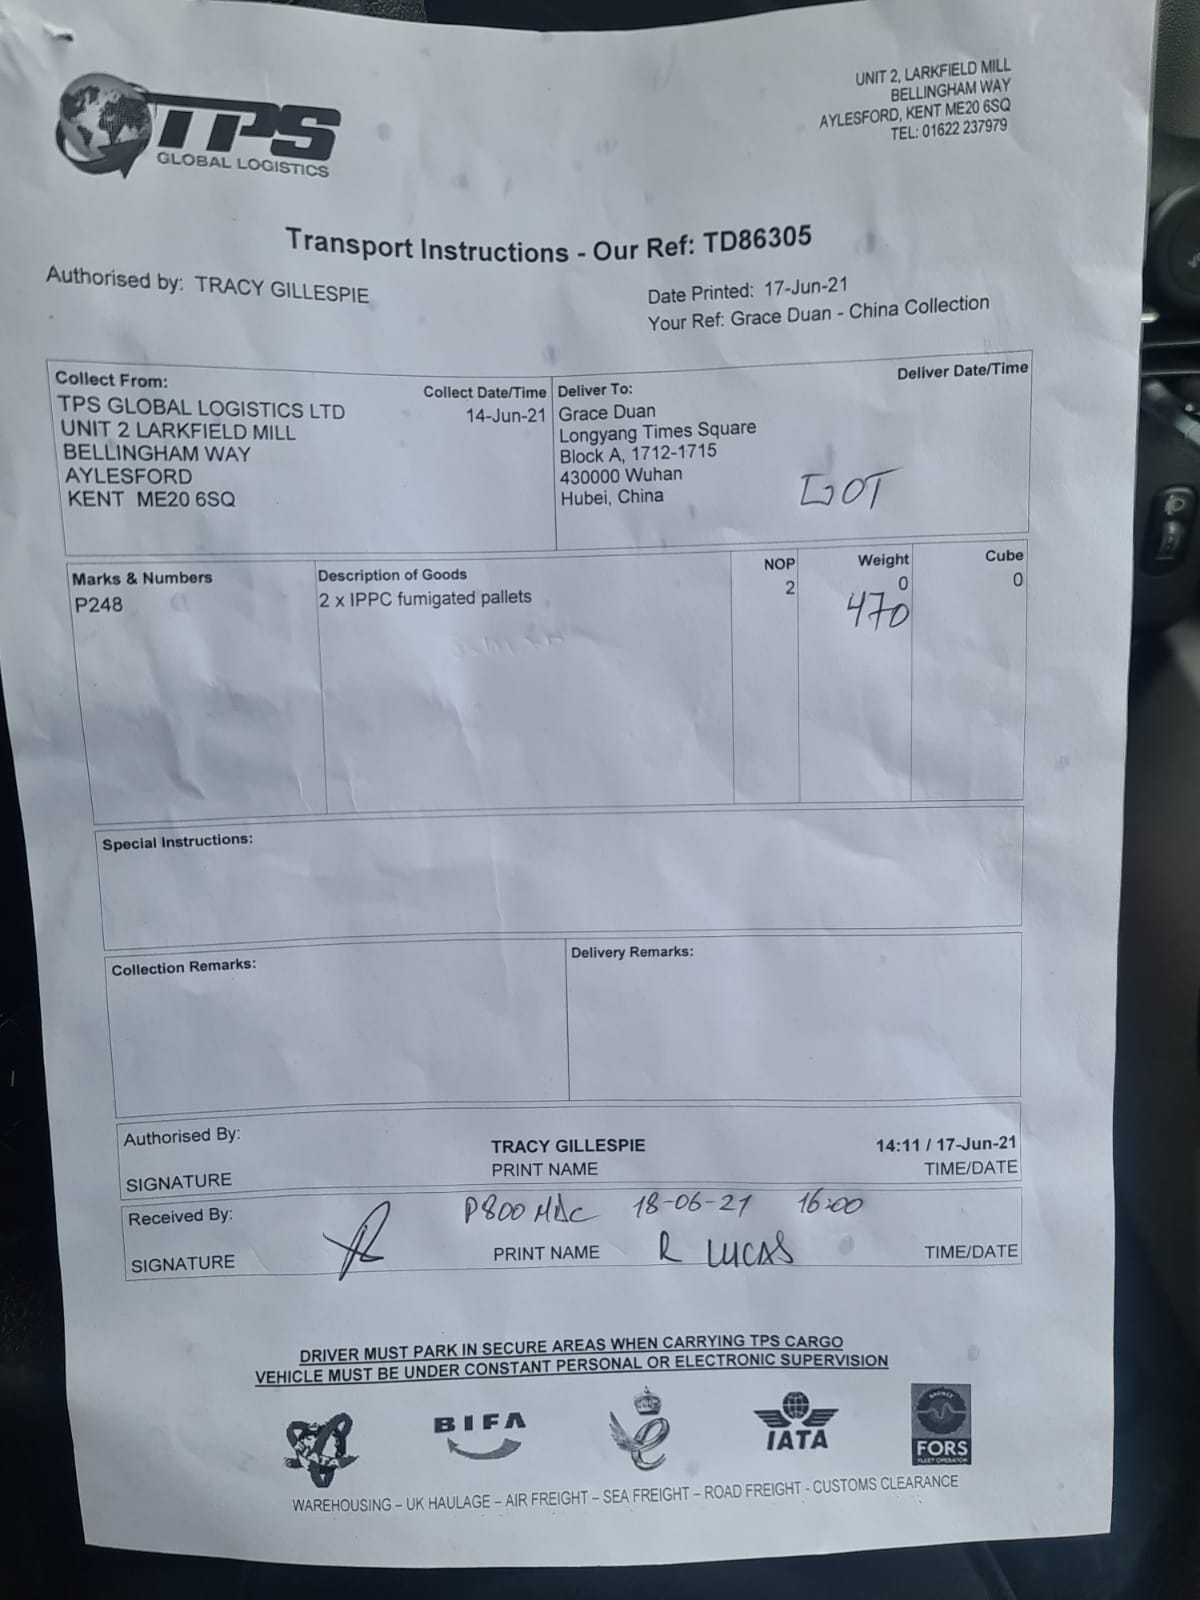 TPS
GLOBAL LOGISTICS
UNIT 2, LARKFIELD MILL
BELLINGHAM WAY
AYLESFORD, KENT ME20 6SQ
TEL: 01622 237979
Transport Instructions - Our Ref: TD86305
Authorised by: TRACY GILLESPIE
Date Printed: 17-Jun-21
Your Ref: Grace Duan - China Collection
Collect From:
Collect Date/Time
TPS GLOBAL LOGISTICS LTD
14-Jun-21
UNIT 2 LARKFIELD MILL
BELLINGHAM WAY
AYLESFORD
KENT ME20 6SQ
Deliver To:
Deliver Date/Time
Grace Duan
Longyang Times Square
Block A, 1712-1715
430000 Wuhan
Hubei, China
Marks & Numbers
P248
Description of Goods
2 x IPPC fumigated pallets
NOP
2
Weight
0
470
Cube
0
Special Instructions:
Collection Remarks:
Delivery Remarks:
Authorised By:
TRACY GILLESPIE
14:11 / 17-Jun-21
SIGNATURE
PRINT NAME
TIME/DATE
Received By:
18-06-21 16:00
SIGNATURE
PRINT NAME R LUCAS
TIME/DATE
DRIVER MUST PARK IN SECURE AREAS WHEN CARRYING TPS CARGO
VEHICLE MUST BE UNDER CONSTANT PERSONAL OR ELECTRONIC SUPERVISION
BIFA
IATA
FORS
WAREHOUSING – UK HAULAGE – AIR FREIGHT – SEA FREIGHT – ROAD FREIGHT - CUSTOMS CLEARANCE